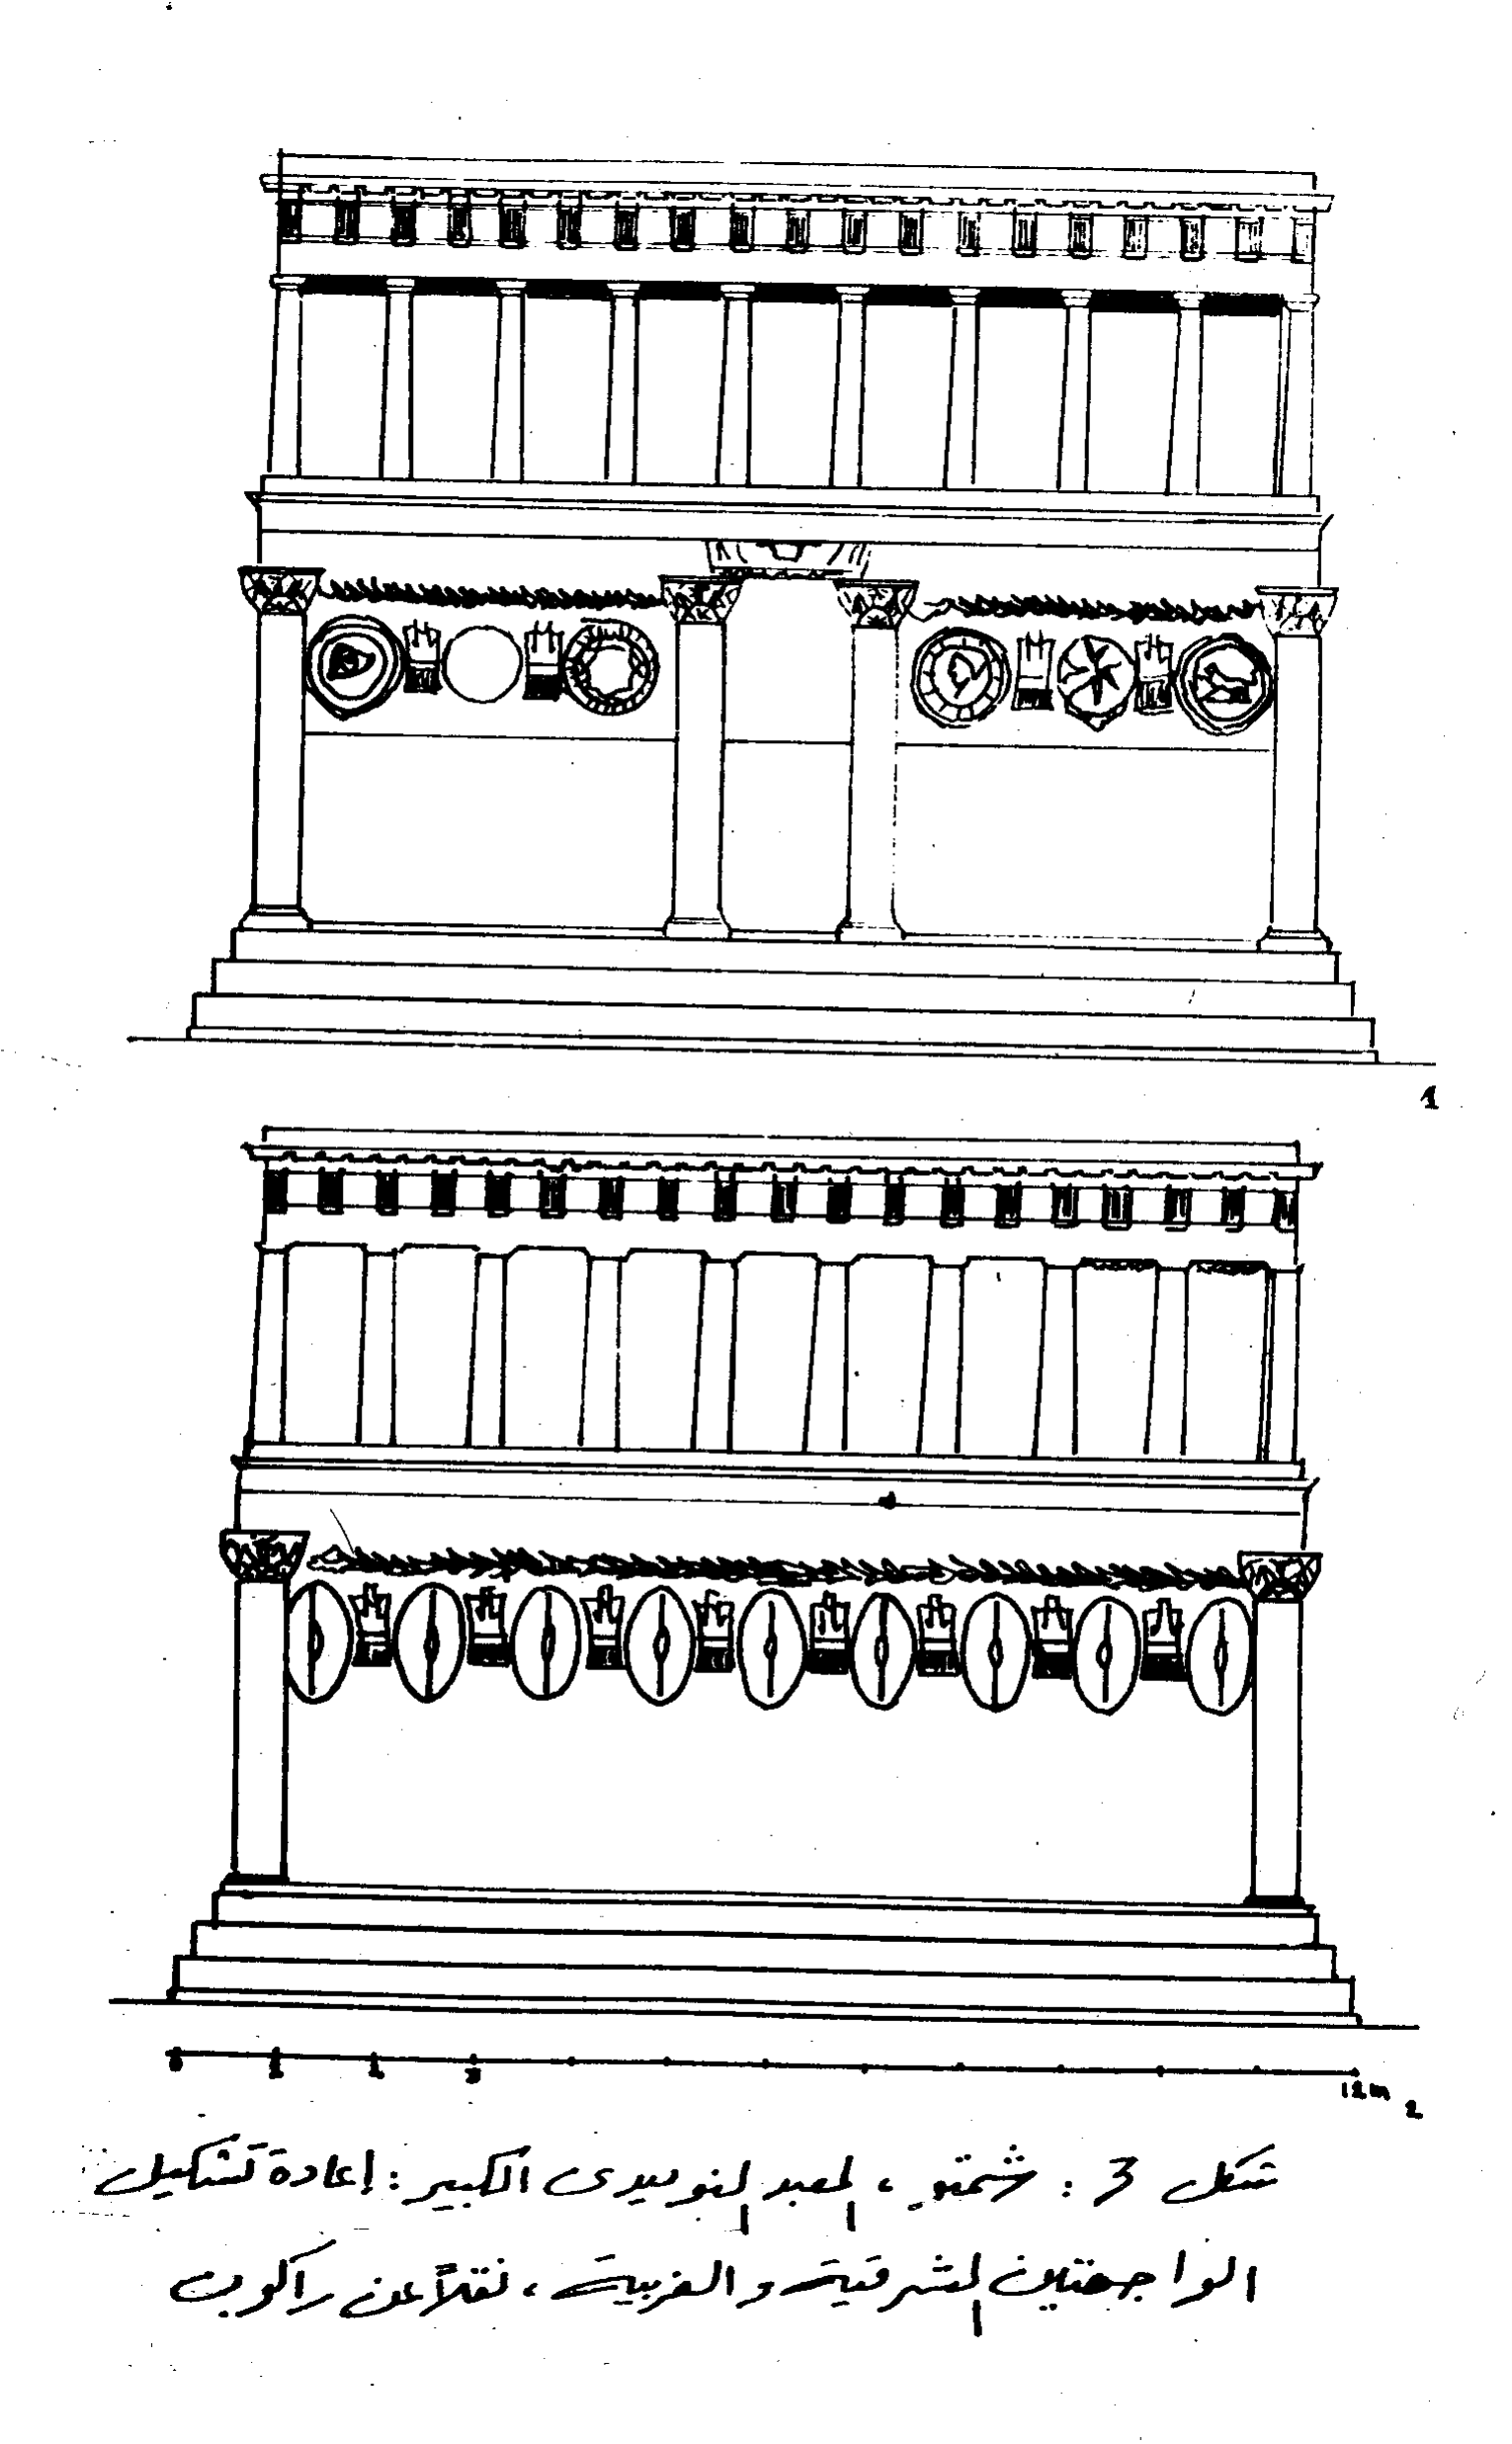 1
0 1 2 3 12m
2
شكل 3 : شمتو ، المعبد النوميدي الكبير : إعادة تشكيل
الواجهتين الشرقية والغربية ، نقلاً عن راكوب